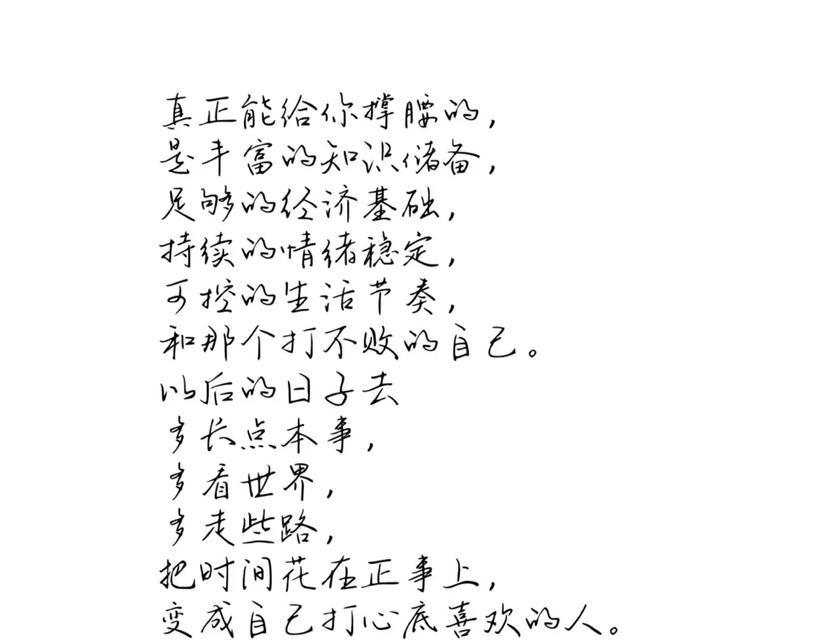 真正能给你撑腰的,
是丰富的知识储备,
足够的经济基础,
持续的情绪稳定,
可控的生活节奏,
和那个打不败的自己。
以后的日子去
多长点本事,
多看世界,
多走些路,
把时间花在正事上,
变成自己打心底喜欢的人。